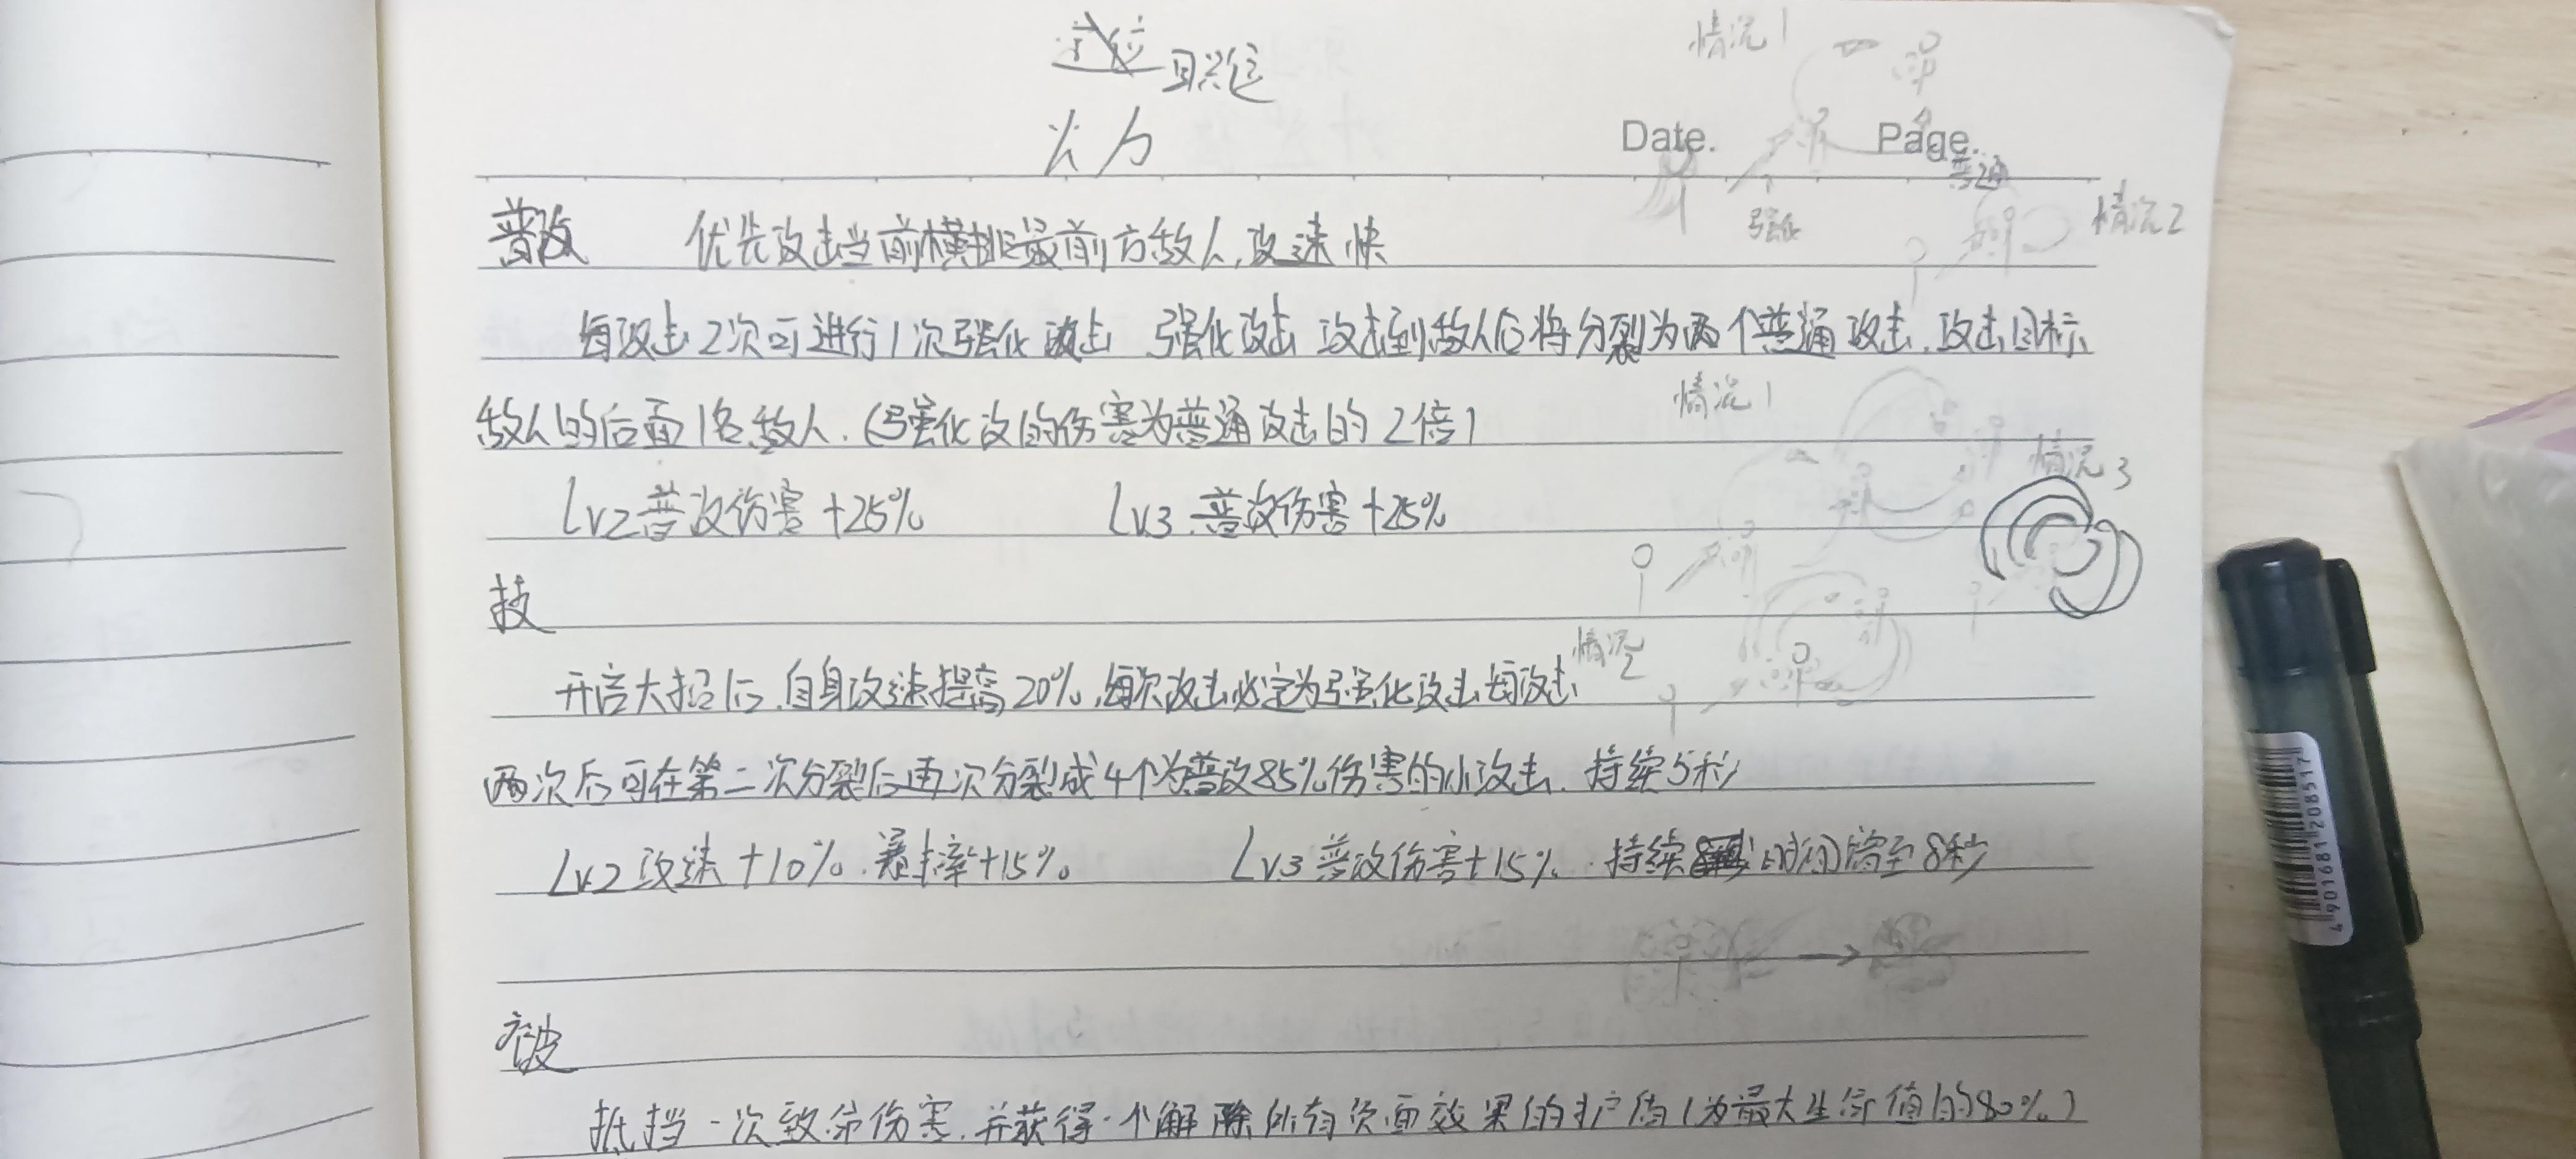 情况1
火力
Date. Page.
普通
强化
情况2
普攻 优先攻击当前横排最前方敌人,攻速快
每攻击2次可进行1次强化攻击 强化攻击 攻击到敌人后将分裂为两个普通攻击,攻击目标
敌人的后面1名敌人.(强化攻的伤害为普通攻击的2倍)
情况1
情况3
Lv2普攻伤害+25% Lv.3.普攻伤害+25%
技
情况2
开启大招后,自身攻速提高20%,每次攻击必定为强化攻击每攻击
两次后可在第二次分裂后再次分裂成4个为普攻85%伤害的小攻击.持续5秒
Lv.2攻速+10%.暴击率+15% Lv.3普攻伤害+15%.持续时间增至8秒
被
抵挡一次致命伤害,并获得一个解除所有负面效果的护盾(为最大生命值的80%)
4901681208517